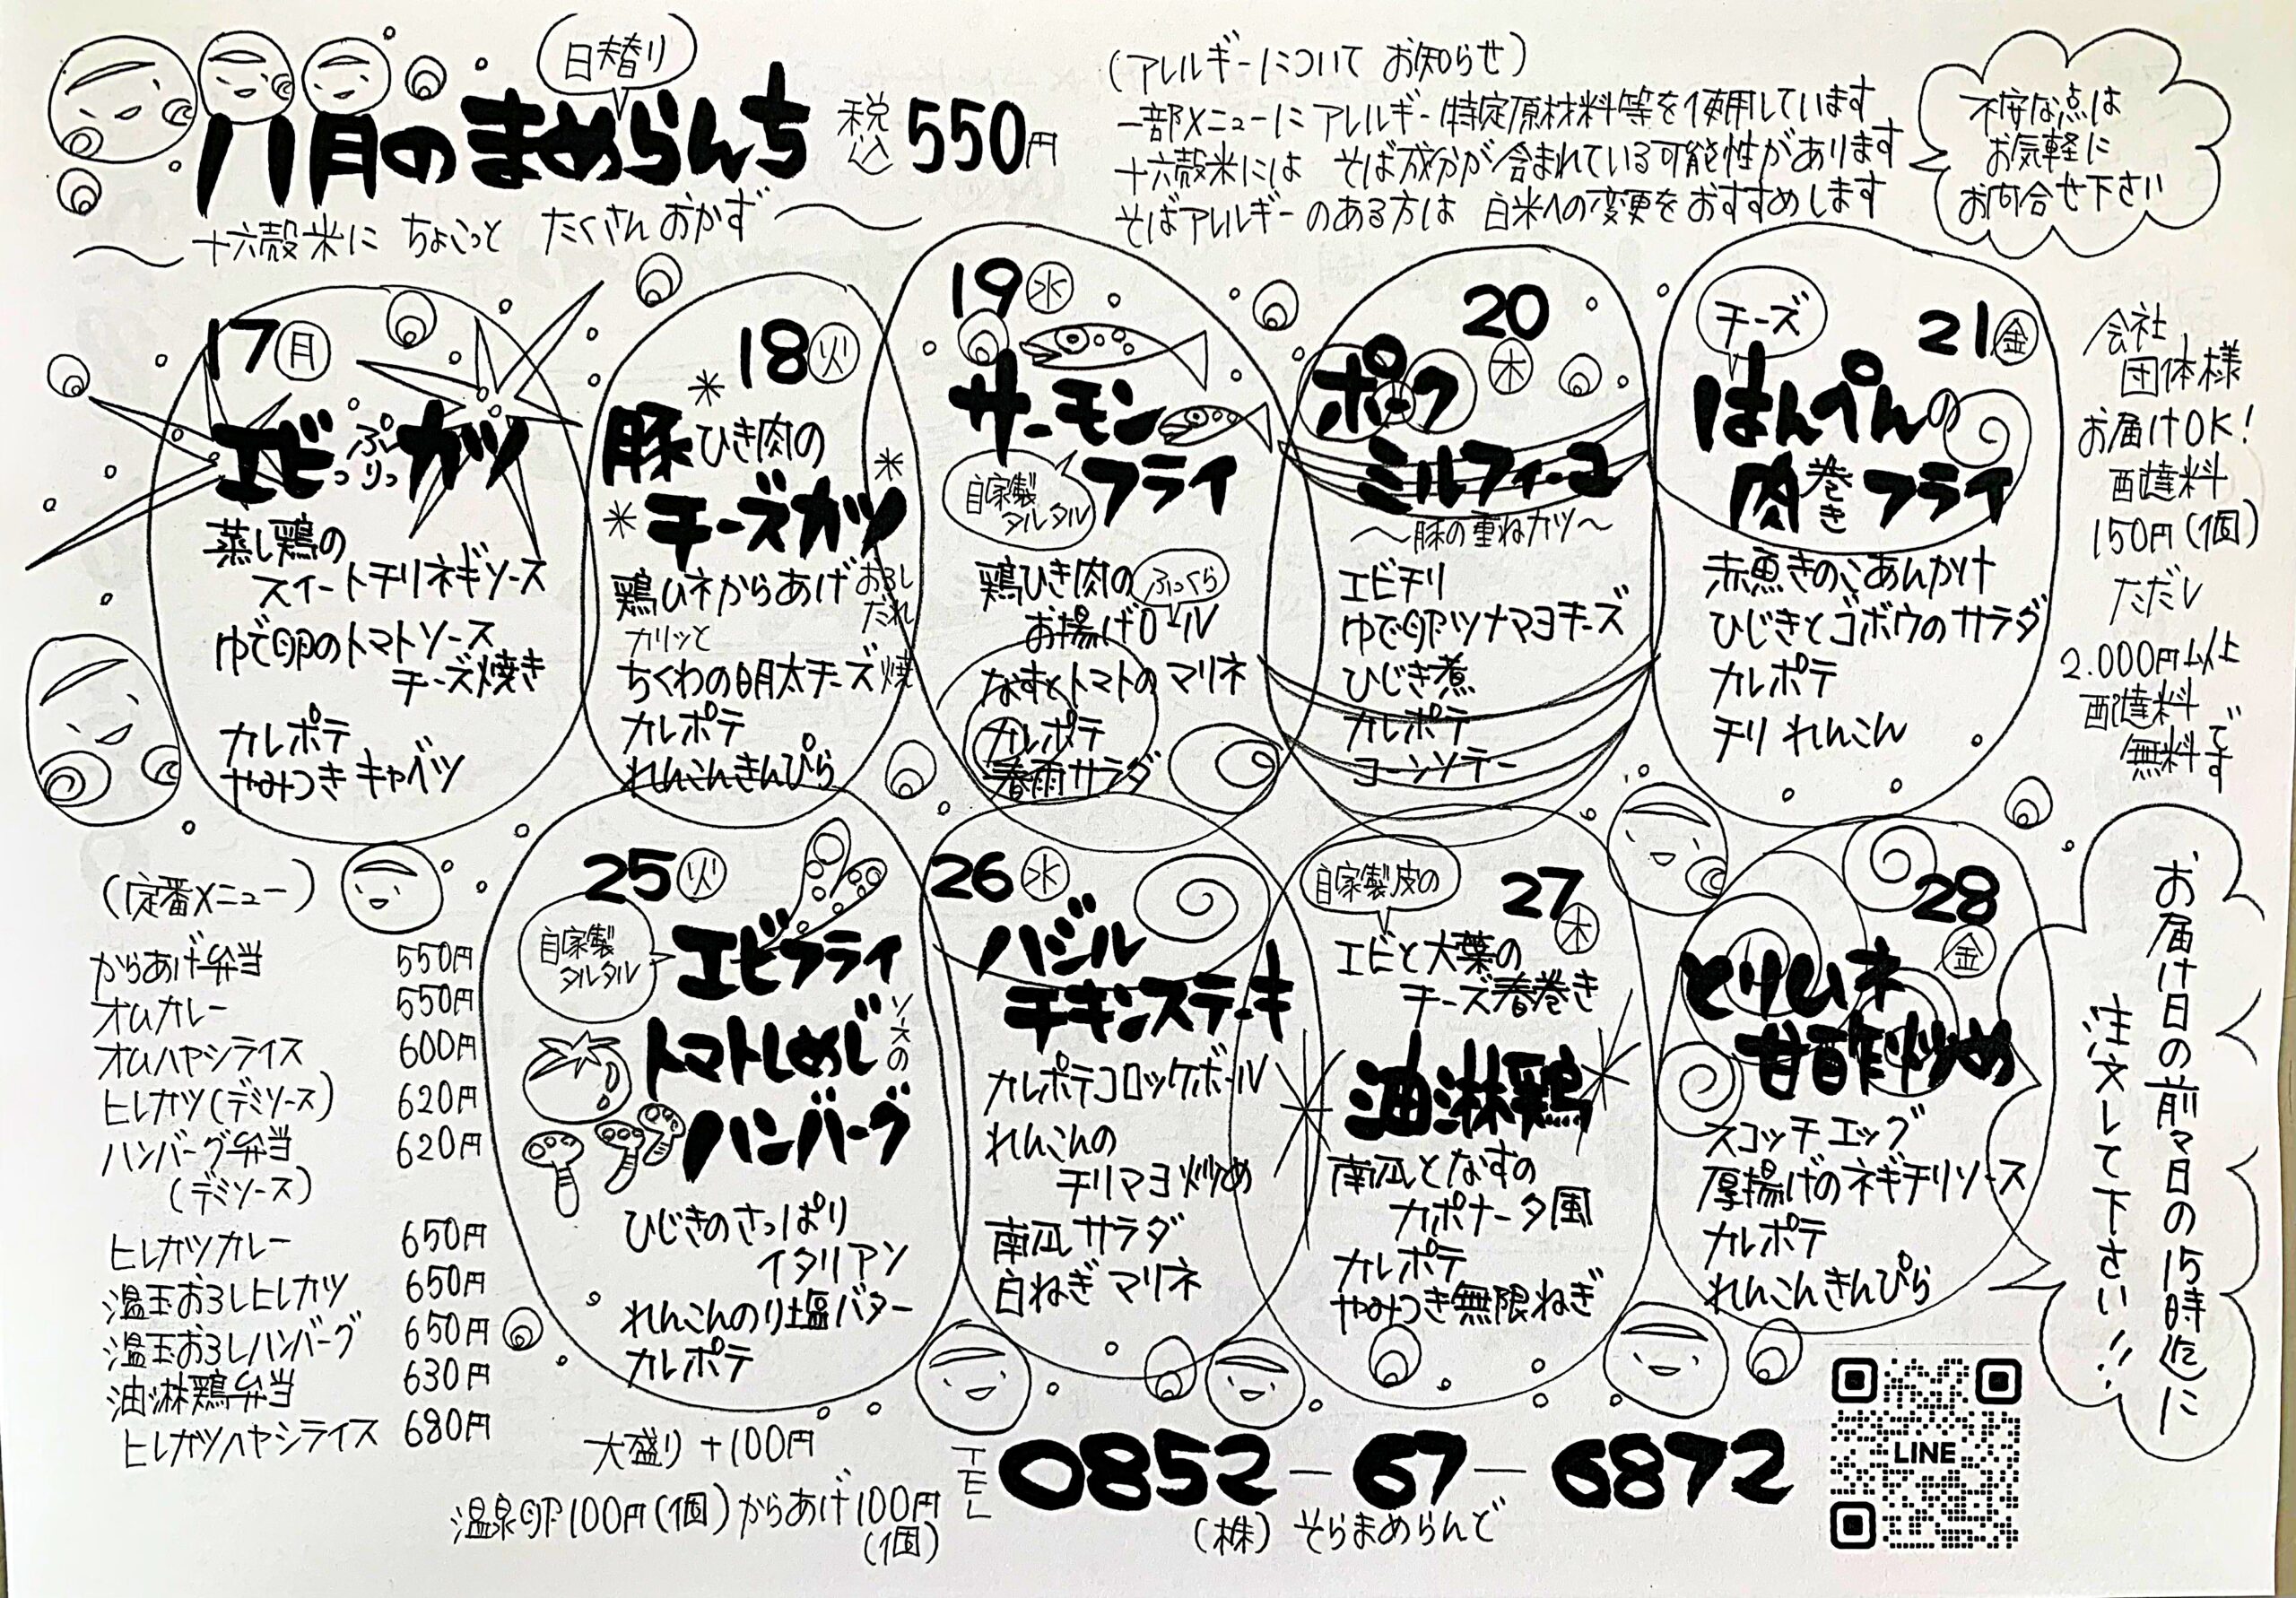 日替り
八月のまめらんち 税込 550円
十六穀米に ちょこっと たくさん おかず
(アレルギーについて お知らせ)
一部メニューに アレルギー特定原材料等を使用しています
十六穀米には そば成分が含まれている可能性があります
そばアレルギーのある方は 白米への変更をおすすめします
不安な点は
お気軽に
お問合せ下さい
17 月
エビ ぷりっぷりっ カツ
蒸し鶏の
スイートチリネギソース
ゆで卵のトマトソース
チーズ焼き
カレポテ
やみつきキャベツ
18 火
豚ひき肉の
チーズカツ
鶏ムネからあげ おろしだれ
カリッと
ちくわの明太チーズ焼
カレポテ
れんこんきんぴら
19 水
サーモン
フライ
自家製
タルタル
鶏ひき肉の ふっくら
お揚げロール
なすとトマトのマリネ
カレポテ
春雨サラダ
20
木
ポーク
ミルフィーユ
〜豚の重ねカツ〜
エビチリ
ゆで卵ツナマヨチーズ
ひじき煮
カレポテ
コーンソテー
21 金
チーズ
はんぺんの
肉巻きフライ
赤魚きのこあんかけ
ひじきとゴボウのサラダ
カレポテ
チリれんこん
会社
団体様
お届けOK!
配達料
150円(個)
ただし
2.000円以上
配達料
無料です
(定番メニュー)
からあげ弁当 550円
オムカレー 550円
オムハヤシライス 600円
ヒレカツ(デミソース) 620円
ハンバーグ弁当 620円
(デミソース)
ヒレカツカレー 650円
温玉おろしヒレカツ 650円
温玉おろしハンバーグ 650円
油淋鶏弁当 630円
ヒレカツハヤシライス 680円
25 火
自家製
タルタル
エビフライ
トマトしめじソースの
ハンバーグ
ひじきのさっぱり
イタリアン
れんこんのり塩バター
カレポテ
26 水
バジル
チキンステーキ
カレポテコロッケボール
れんこんの
チリマヨ炒め
南瓜サラダ
白ねぎマリネ
自家製皮の
27
木
エビと大葉の
チーズ春巻き
油淋鶏
南瓜となすの
カポナータ風
カレポテ
やみつき無限ねぎ
28
金
とりムネ
甘酢炒め
スコッチエッグ
厚揚げのネギチリソース
カレポテ
れんこんきんぴら
お届け日の前々日の15時迄に
注文して下さい!!
大盛り +100円
温泉卵100円(個) からあげ100円
(個)
TEL 0852-67-6872
(株) そらまめらんど
LINE